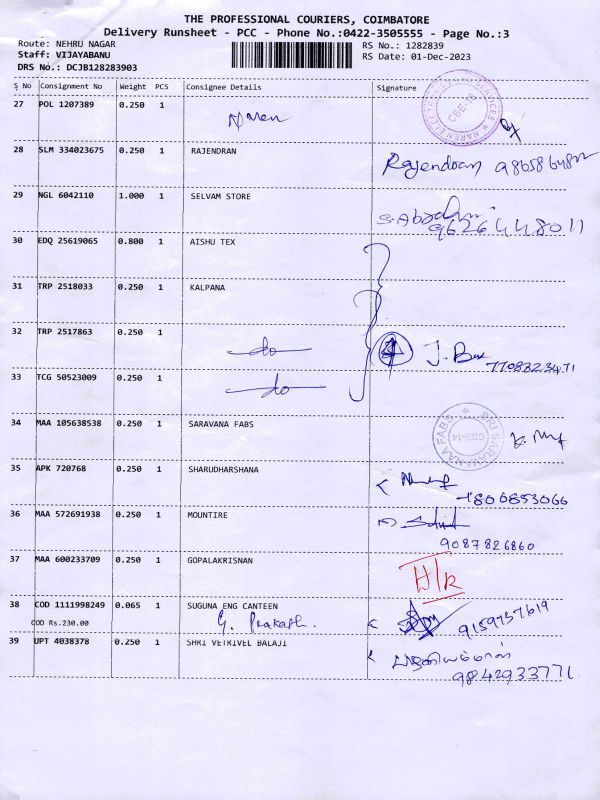 THE PROFESSIONAL COURIERS, COIMBATORE
Delivery Runsheet - PCC - Phone No.:0422-3505555 - Page No.:3
Route: NEHRU NAGAR
RS No.: 1282839
Staff: VIJAYABANU
RS Date: 01-Dec-2023
DRS No.: DCJB128283903
S No Consignment No Weight PCS Consignee Details Signature
27 POL 1207389 0.250 1 Naren
28 SLM 334023675 0.250 1 RAJENDRAN Rajendran
29 NGL 6042110 1.000 1 SELVAM STORE
9626448011
30 EDQ 25619065 0.800 1 AISHU TEX
31 TRP 2518033 0.250 1 KALPANA
32 TRP 2517863 0.250 1 do
7708323471
33 TCG 50523009 0.250 1 do
34 MAA 105638538 0.250 1 SARAVANA FABS
SRI SARAVANAA FABS CBE-14
35 APK 720768 0.250 1 SHARUDHARSHANA
36 MAA 572691938 0.250 1 MOUNTIRE
9087826860
37 MAA 600233709 0.250 1 GOPALAKRISNAN H/R
38 COD 1111998249 0.065 1 SUGUNA ENG CANTEEN
COD Rs.230.00 G. Prakash. 9159737619
39 UPT 4038378 0.250 1 SHRI VETRIVEL BALAJI
9842933771